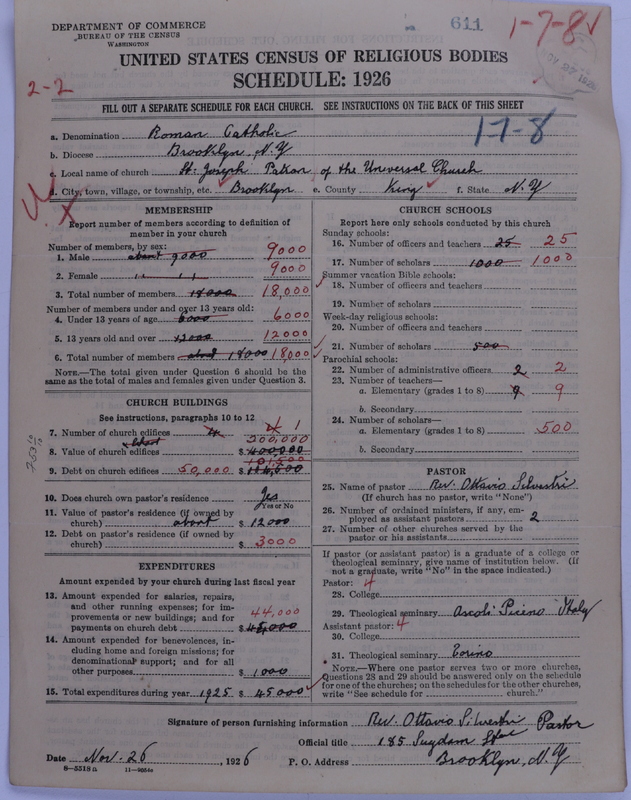 DEPARTMENT OF COMMERCE
BUREAU OF THE CENSUS
WASHINGTON
611
1-7-8
UNITED STATES CENSUS OF RELIGIOUS BODIES
SCHEDULE: 1926
2-2
FILL OUT A SEPARATE SCHEDULE FOR EACH CHURCH. SEE INSTRUCTIONS ON THE BACK OF THIS SHEET
17-8
a. Denomination Roman Catholic
b. Diocese Brooklyn, N.Y
c. Local name of church St. Joseph Patron of the Universal Church
d. City, town, village, or township, etc. Brooklyn e. County King f. State N.Y
MEMBERSHIP
Report number of members according to definition of
member in your church
Number of members, by sex:
1. Male about 9000 9000
2. Female " " 9000
3. Total number of members 18000 18,000
Number of members under and over 13 years old:
4. Under 13 years of age 6000 6000
5. 13 years old and over 12000 12000
6. Total number of members about 18000 18,000
NOTE.—The total given under Question 6 should be
the same as the total of males and females given under Question 3.
CHURCH BUILDINGS
See instructions, paragraphs 10 to 12
7. Number of church edifices 4 4 1
8. Value of church edifices about $ 400,000 200,000
9. Debt on church edifices 50,000 $
10. Does church own pastor's residence Yes
Yes or No
11. Value of pastor's residence (if owned by
church) about $ 12000
12. Debt on pastor's residence (if owned by
church) $ 3000
EXPENDITURES
Amount expended by your church during last fiscal year
13. Amount expended for salaries, repairs,
and other running expenses; for im-
provements or new buildings; and for
payments on church debt $ 45,000 44,000
14. Amount expended for benevolences, in-
cluding home and foreign missions; for
denominational support; and for all
other purposes $ 1000
15. Total expenditures during year 1925 $ 45000
CHURCH SCHOOLS
Report here only schools conducted by this church
Sunday schools:
16. Number of officers and teachers 25 25
17. Number of scholars 1000 1000
Summer vacation Bible schools:
18. Number of officers and teachers
19. Number of scholars
Week-day religious schools:
20. Number of officers and teachers
21. Number of scholars 500
Parochial schools:
22. Number of administrative officers 2 2
23. Number of teachers—
a. Elementary (grades 1 to 8) 9 9
b. Secondary
24. Number of scholars—
a. Elementary (grades 1 to 8) 500
b. Secondary
PASTOR
25. Name of pastor Rev. Ottavio Silvestri
(If church has no pastor, write "None")
26. Number of ordained ministers, if any, em-
ployed as assistant pastors 2
27. Number of other churches served by the
pastor or his assistants
If pastor (or assistant pastor) is a graduate of a college or
theological seminary, give name of institution below. (If
not a graduate, write "No" in the space indicated.)
Pastor: 4
28. College
29. Theological seminary Ascoli Piceno Italy
Assistant pastor: 4
30. College
31. Theological seminary Torino
NOTE.—Where one pastor serves two or more churches,
Questions 28 and 29 should be answered only on the schedule
for one of the churches; on the schedules for the other churches,
write "See schedule for church."
Signature of person furnishing information Rev. Ottavio Silvestri Pastor
Official title 185 Suydam
Date Nov. 26, 1926 P. O. Address Brooklyn, N.Y
8—5518a 11—9054